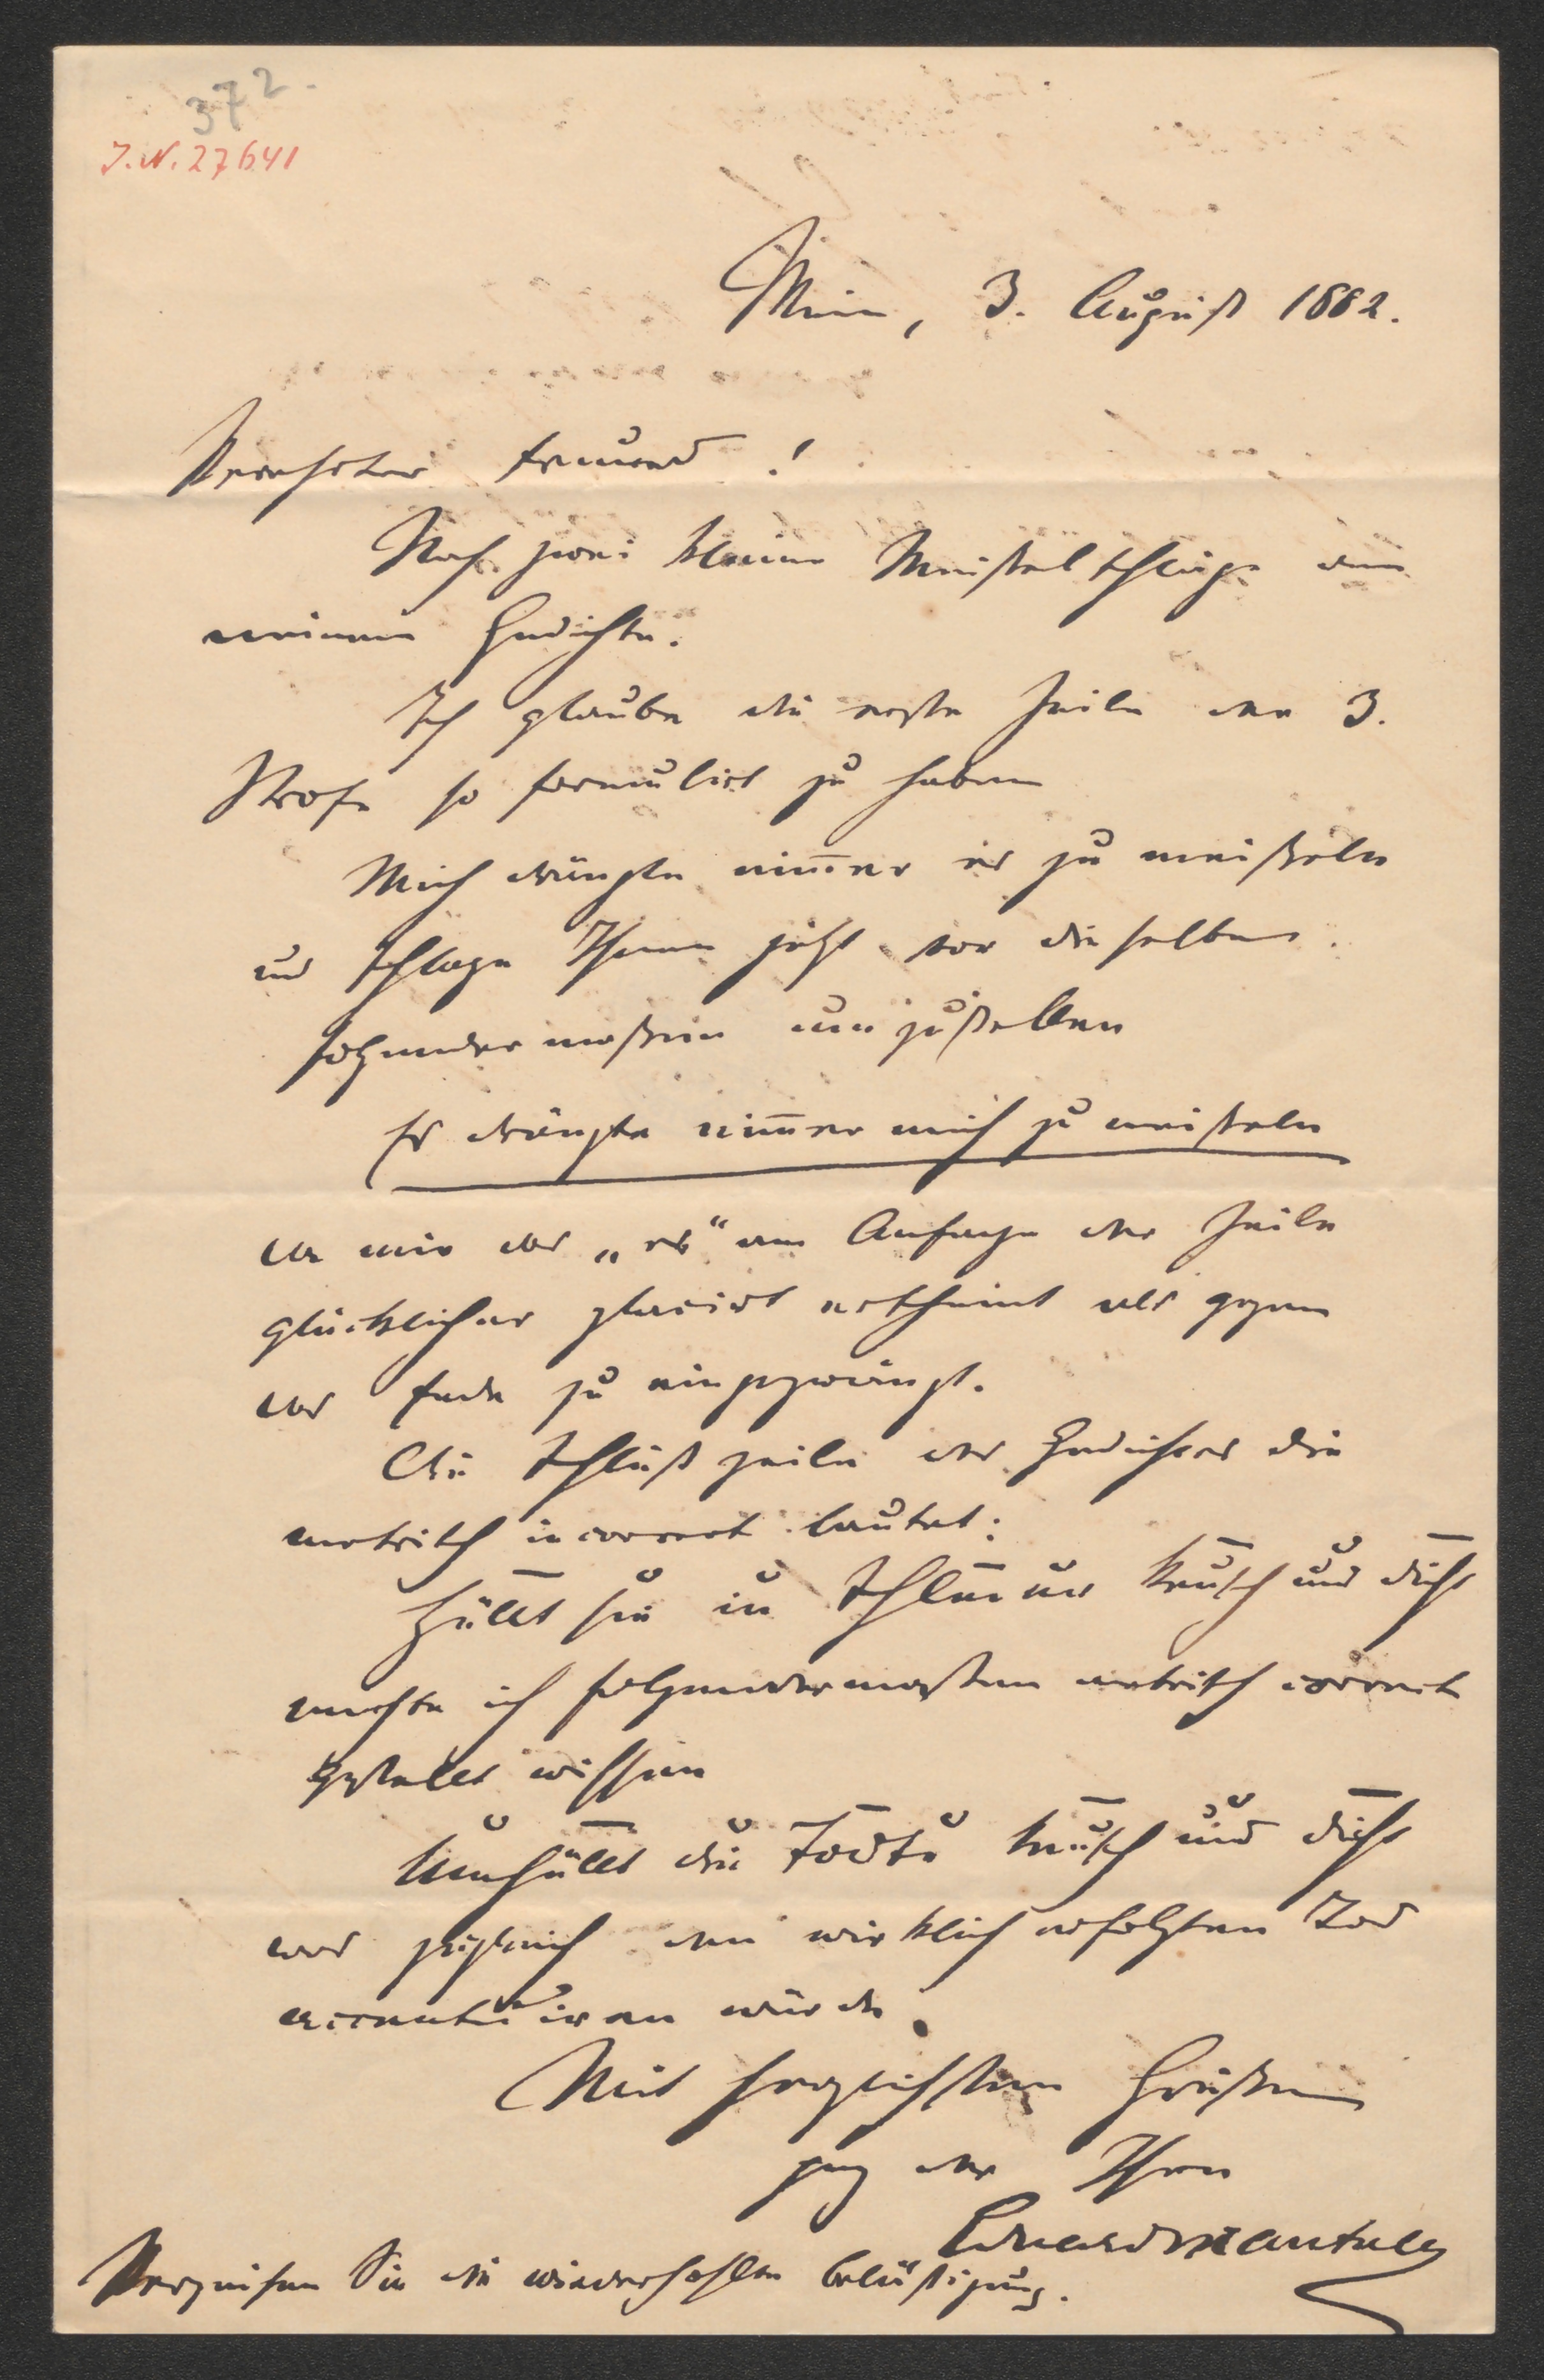 372.
J.N. 27641
Wien, 3. August 1882.
Verehrter Freund!
Noch zwei kleine Meißelschläge an
meinem Gedichte.
Ich glaube die erste Zeile der 3.
Strofe so formulirt zu haben
Mich drängte nim̅er es zu meißeln
und schlage Ihnen jetzt vor dieselbe
folgendermaßen umzustellen
Es drängte nim̅er mich zu meißeln
da mir das „es“ am Anfange der Zeile
glücklicher placirt erscheint als gegen
das Ende zu eingezwängt.
Die Schlußzeile des Gedichtes die
metrisch incorrect lautet:
Hüllt sie in Schleier keusch und dicht
möchte ich folgendermaßen metrisch correct
gestaltet wissen
Umhüllt die Todte keusch und dicht
was zugleich den wirklich erfolgten Tod
accentuiren würde.
Mit herzlichsten Grüßen
ganz der Ihre
Eduard Mautner
Verzeihen Sie die wiederholte Belästigung.